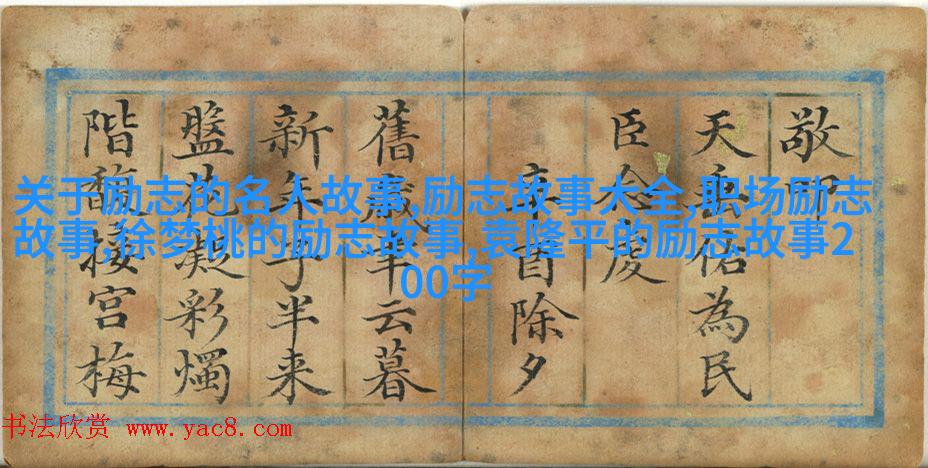 敬叩
天垂佑為民
臣念虔
辛酉除夕
舊歲聿云暮
新年子半来
盤花凝彩燭
階馥接宮梅
关于励志的名人故事,励志故事大全,职场励志
故事,徐梦桃的励志故事,袁隆平的励志故事2
00字
书法欣赏 www.yac8.com